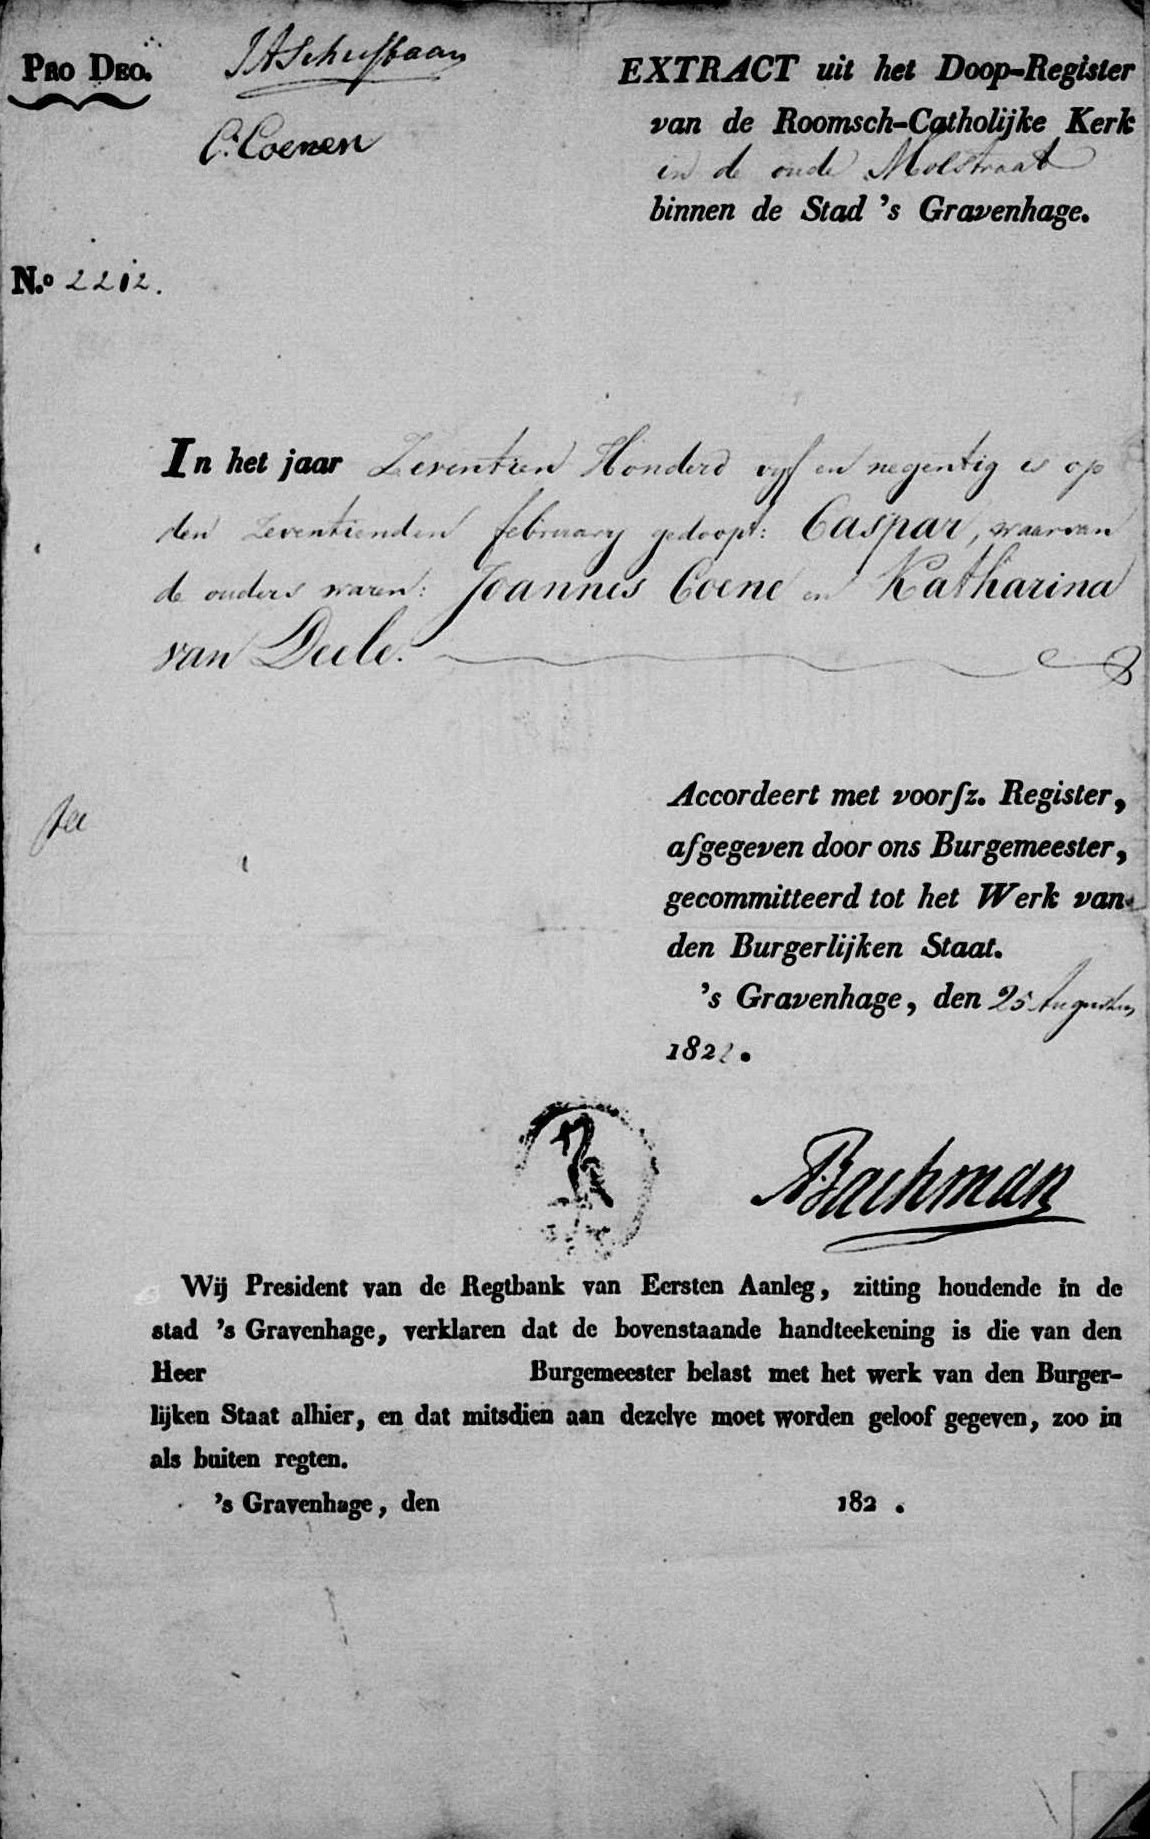 PRO DEO.
C. Coenen
EXTRACT uit het Doop-Register
van de Roomsch-Catholijke Kerk
in de oude Molstraat
binnen de Stad 's Gravenhage.
N.o 2212.
In het jaar Zeventien Honderd vyf en negentig is op
den zeventienden february gedoopt: Caspar, waarvan
de ouders waren: Joannes Coene en Katharina
van Deele.
Accordeert met voorſz. Register,
afgegeven door ons Burgemeester,
gecommitteerd tot het Werk van
den Burgerlijken Staat.
's Gravenhage, den 25 Augustus
1822.
Bachman
Wij President van de Regtbank van Eersten Aanleg, zitting houdende in de
stad 's Gravenhage, verklaren dat de bovenstaande handteekening is die van den
Heer Burgemeester belast met het werk van den Burger-
lijken Staat alhier, en dat mitsdien aan dezelve moet worden geloof gegeven, zoo in
als buiten regten.
's Gravenhage, den 182 .